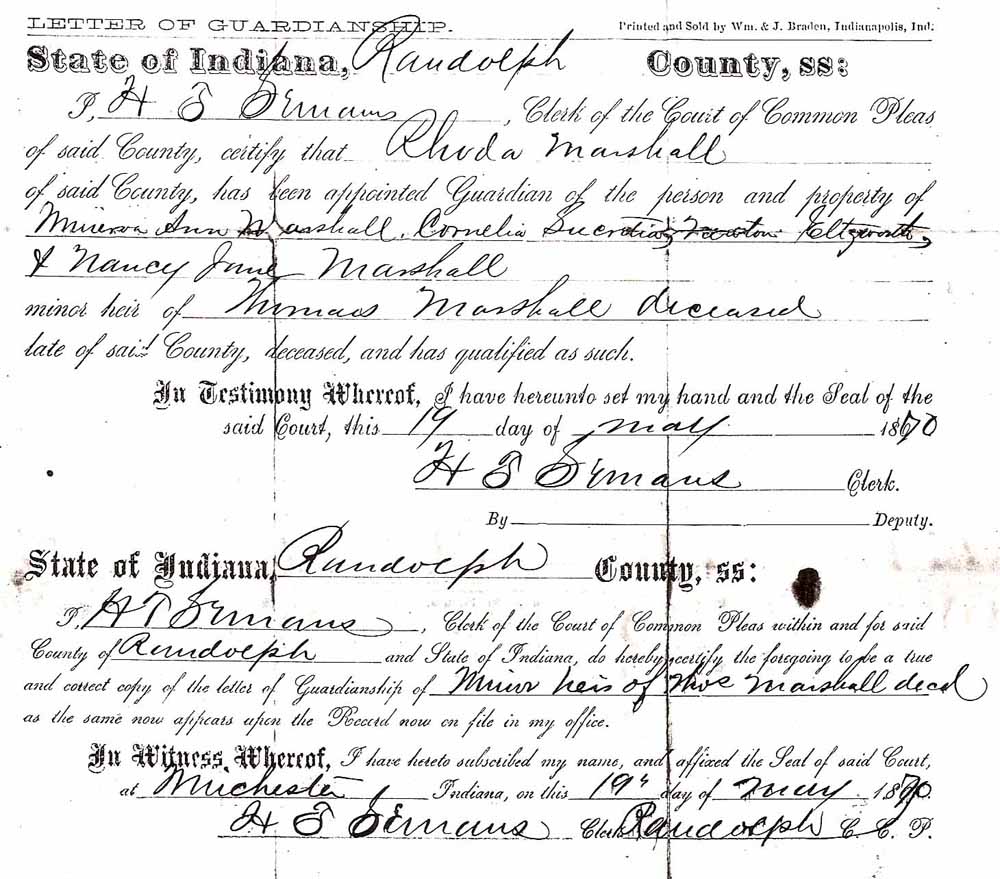 LETTER OF GUARDIANSHIP. Printed and Sold by Wm. & J. Braden, Indianapolis, Ind.
State of Indiana, Randolph County, ss:
I, H T Semans, Clerk of the Court of Common Pleas
of said County, certify that Rhoda Marshall
of said County, has been appointed Guardian of the person and property of
Minerva Ann Marshall, Cornelia Lucretia, Newton Eltzworth,
& Nancy Jane Marshall
minor heir of Thomas Marshall deceased
late of said County, deceased, and has qualified as such.
In Testimony Whereof, I have hereunto set my hand and the Seal of the
said Court, this 19 day of May 1870
H T Semans Clerk.
By Deputy.
State of Indiana, Randolph County, ss:
I, H T Semans, Clerk of the Court of Common Pleas within and for said
County of Randolph and State of Indiana, do hereby certify the foregoing to be a true
and correct copy of the letter of Guardianship of Minor heis of Thos Marshall decd
as the same now appears upon the Record now on file in my office.
In Witness Whereof, I have hereto subscribed my name, and affixed the Seal of said Court,
at Winchester Indiana, on this 19" day of May 1870.
H T Semans Clerk Randolph C. C. P.